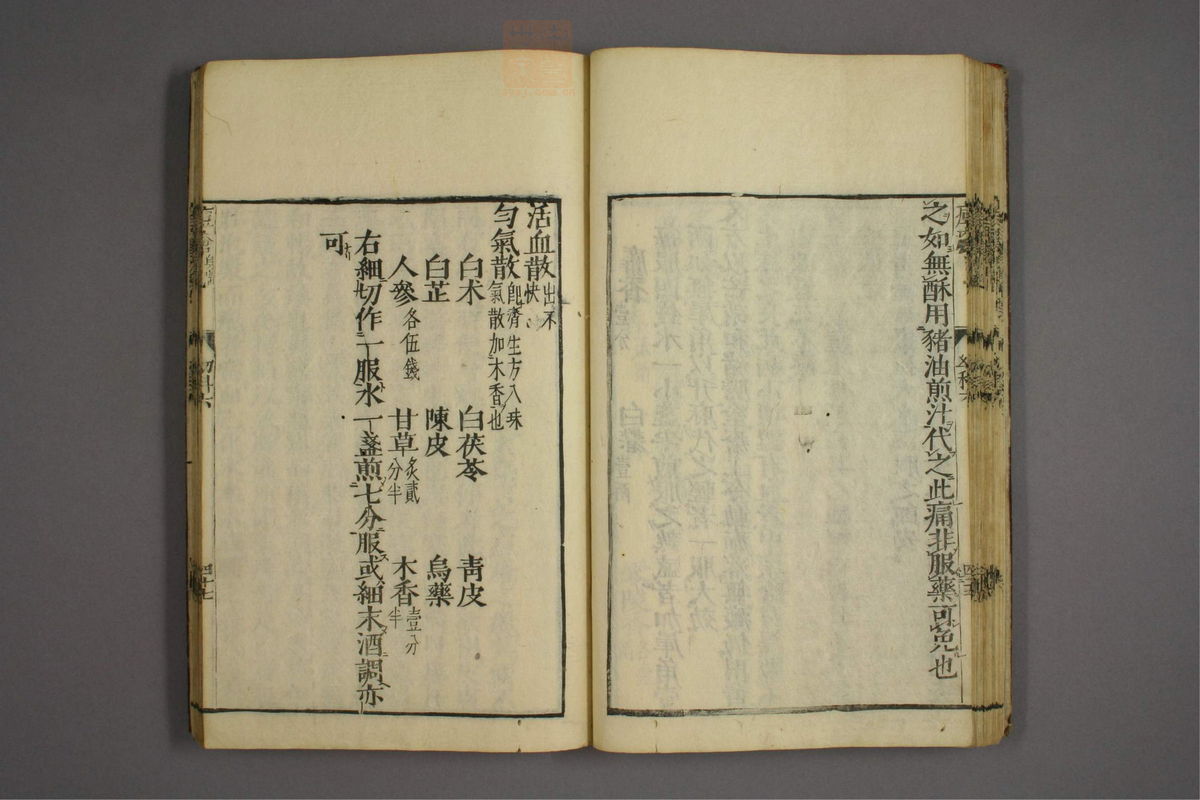 之如無酥用豬油煎汁代之此痛非服藥可免也
活血散出不快
勻氣散即濟生方八珎氣散加木香也
白术 白茯苓 青皮
白芷 陳皮 烏藥
人參各伍錢 甘草炙貳分半 木香壹分半
右細切作一服水一盞煎七分服或細末酒調亦
可